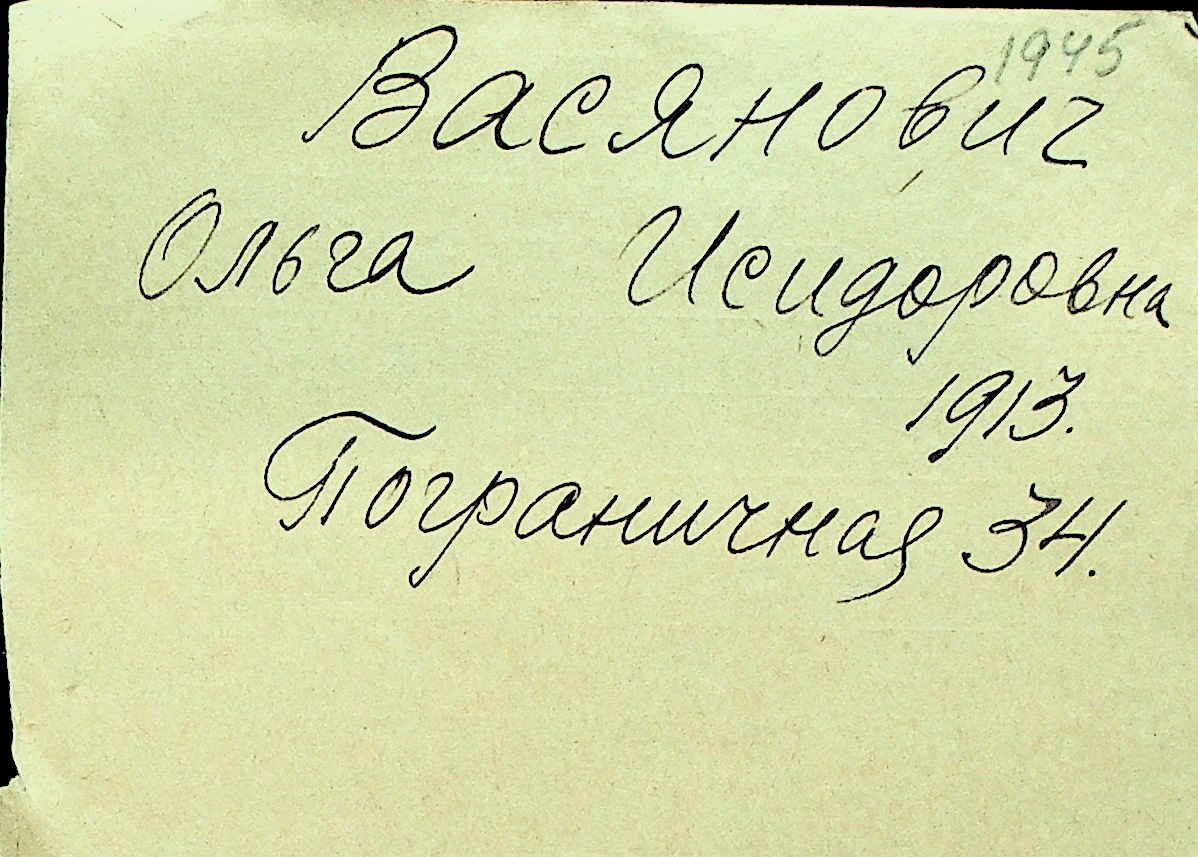 1945
Васянович
Ольга Исидоровна
1913.
Пограничная 34.